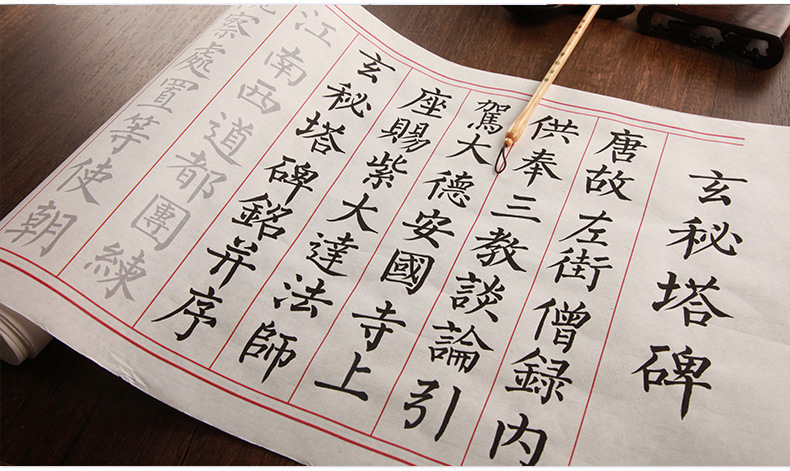 玄秘塔碑
唐故左街僧録内
供奉三教談論引
駕大德安國寺上
座賜紫大達法師
玄秘塔碑銘并序
江南西道都團練
察處置等使朝